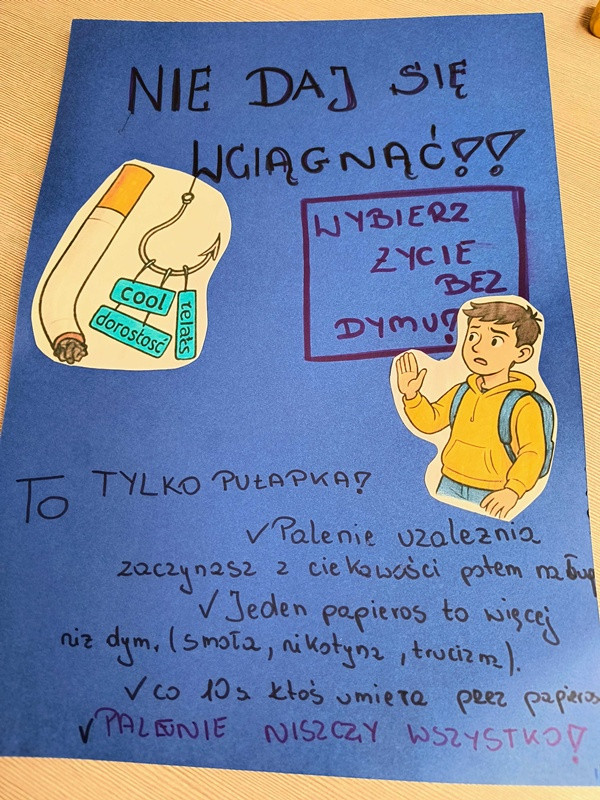 NIE DAJ SIĘ
WCIĄGNĄĆ!!
WYBIERZ
ŻYCIE
BEZ
DYMU!
cool
dorosłość
relaks
TO TYLKO PUŁAPKA!
✓ Palenie uzależnia
zaczynasz z ciekawości potem nałóg
✓ Jeden papieros to więcej
niż dym. (smoła, nikotyna, trucizna).
✓ co 10s ktoś umiera przez papieros
✓ PALENIE NISZCZY WSZYSTKO!